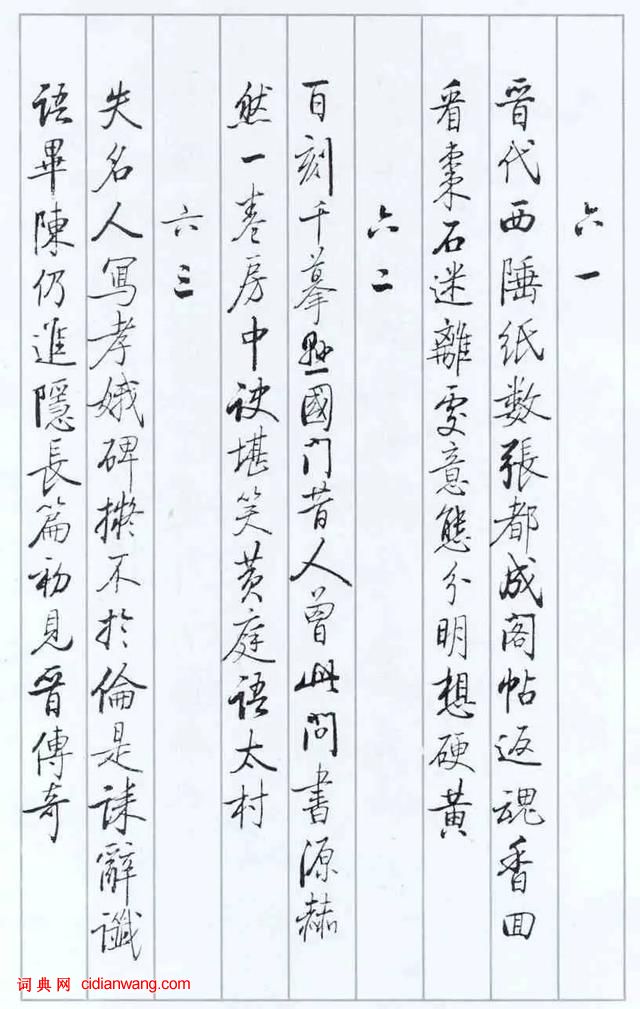 六一
晉代西陲紙數張都成閣帖返魂香回
看棗石迷離處意態分明想硬黃
六二
百刻千摹懸國門昔人曾此問書源赫
然一卷房中訣堪笑黃庭語太村
六三
失名人寫孝娥碑擬不於倫是誄辭讖
語畢陳仍進隱長篇初見晉傳奇
词典网 cidianwang.com